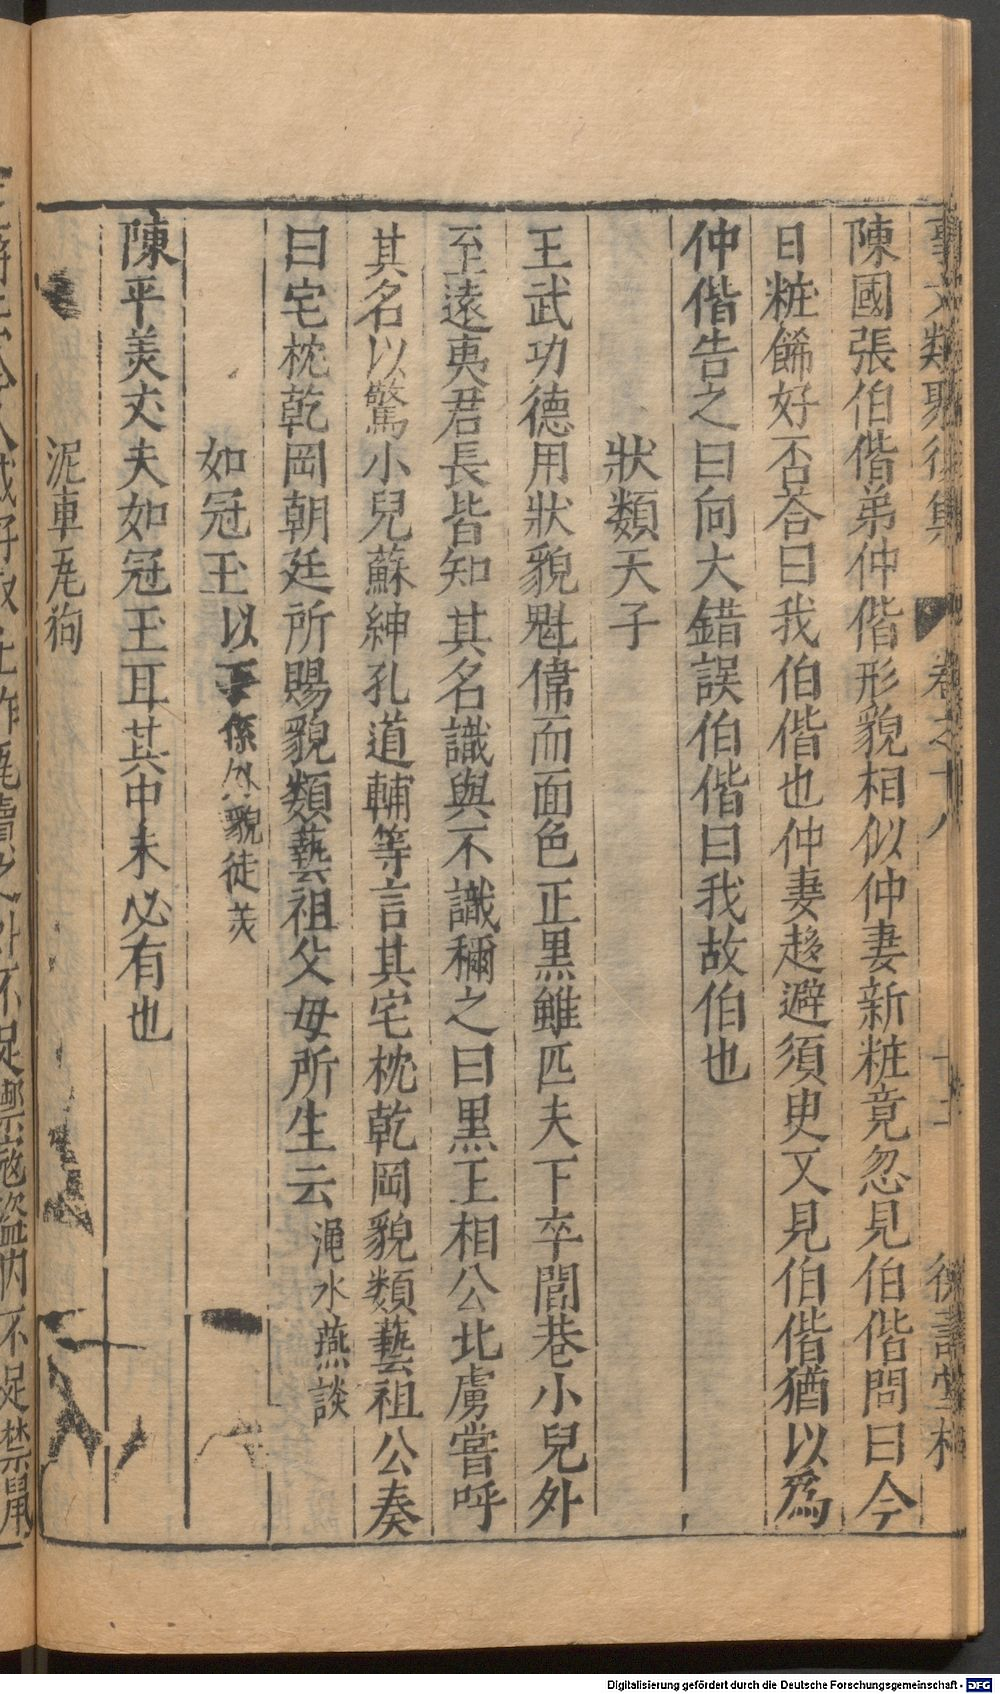 事文類聚後集 卷之十八 十二 德壽堂梓
陳國張伯偕弟仲偕形貌相似仲妻新粧竟忽見伯偕問曰今
日粧餙好否荅曰我伯偕也仲妻趍避須臾又見伯偕猶以爲
仲偕告之曰向大錯誤伯偕曰我故伯也
狀類天子
王武功德用狀貌魁偉而面色正黒雖匹夫下卒閭巷小兒外
至遠夷君長皆知其名識與不識稱之曰黒王相公北虜嘗呼
其名以驚小兒蘇紳孔道輔等言其宅枕乾岡貌類藝祖公奏
曰宅枕乾岡朝廷所賜貌類藝祖父母所生云 澠水燕談
如冠玉 以下係外貌徒羙
陳平羙丈夫如冠玉耳其中未必有也
泥車瓦狗
作瓦
賣之外不足禦寇盜內不足禁鼠
Digitalisierung gefördert durch die Deutsche Forschungsgemeinschaft - DFG